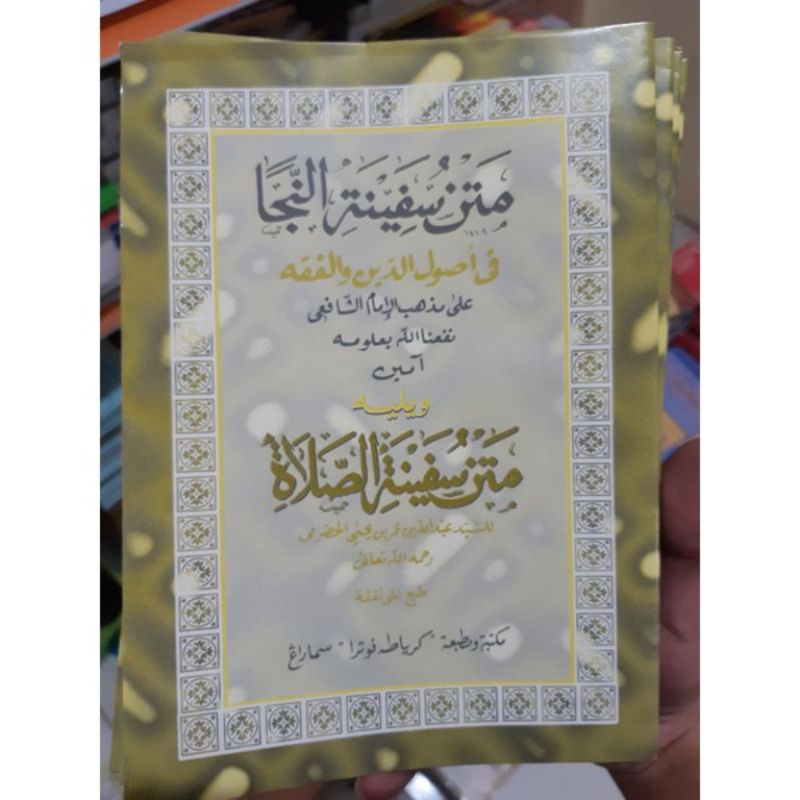 متن سفينة النجا
في أصول الدين والفقه
على مذهب الإمام الشافعي
نفعنا الله بعلومه
آمين
ويليه
متن سفينة الصلاة
للسيد عبد الله بن عمر بن يحيى الحضرمي
رحمه الله تعالى
طبع على نفقة
مكتبة ومطبعة "كرياطه فوترا" سماراڠ